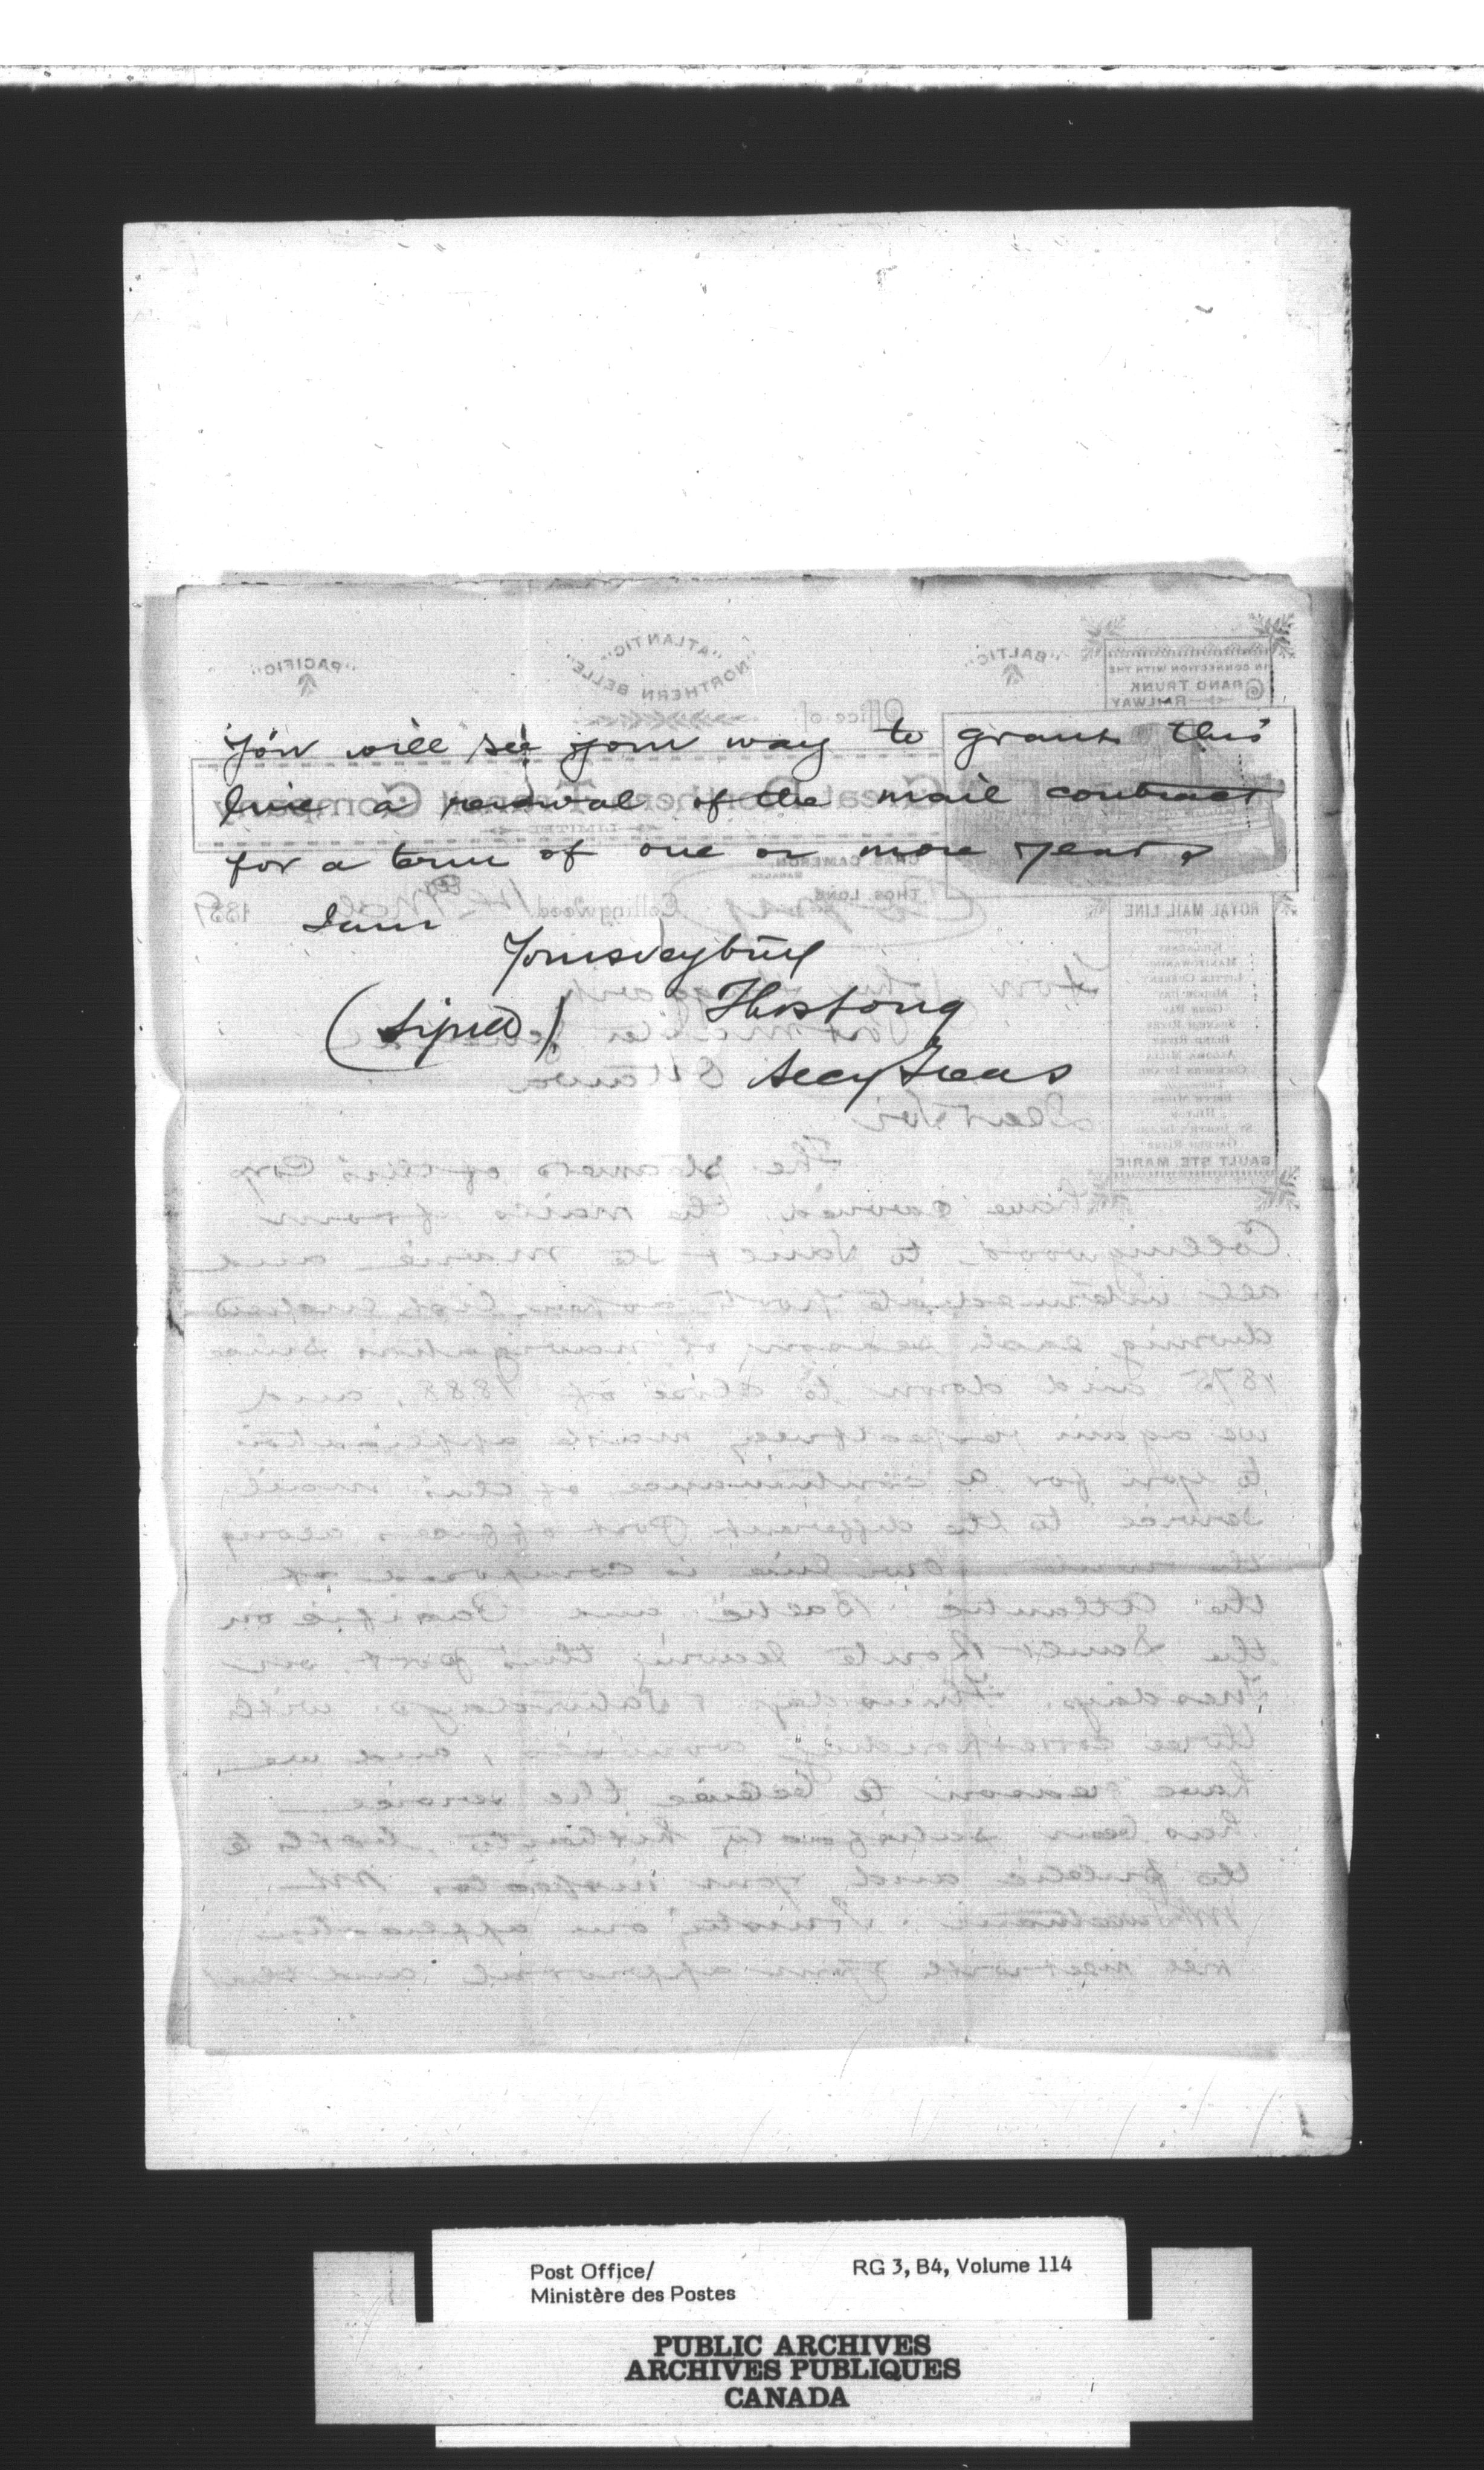 you will see your way to grant this
line a renewal of the mail contract
for a term of one or more years
I am
Yours very truly
(Signed) Thos Long
Secy Treas
"PACIFIC"
"ATLANTIC"
"NORTHERN BELLE"
"BALTIC"
IN CONNECTION WITH THE
GRAND TRUNK
RAILWAY
Office of
Great Northern Transit Company
LIMITED
CHAS. CAMERON,
MANAGER
THOS. LONG
Collingwood, 1889
ROYAL MAIL LINE
TO
KILLARNEY
MANITOWANING
LITTLE CURRENT
GORE BAY
SPANISH RIVER
BLIND RIVER
ALGOMA MILLS
BRUCE MINES
HILTON
GARDEN RIVER
SAULT STE. MARIE
Hon John Haggart
Post Master General
Ottawa
Dear Sir
The steamers of this Coy
have carried the mails from
Collingwood to Sault Ste Marie and
all intermediate ports
during each season of navigation since
1875 and down to close of 1888, and
we again respectfully make application
to you for a continuance of this mail
service to the different Post offices along
the route. Our line is composed of
the Atlantic Baltic and Pacific on
the Sault Route leaving this port on
Tuesdays, Thursdays & Saturdays with
three corresponding arrivals, and we
have reason to believe the service
has been satisfactory hitherto, both to
the public and your inspector Mr
our application
will meet with your approval and that
Post Office/
Ministère des Postes
RG 3, B4, Volume 114
PUBLIC ARCHIVES
ARCHIVES PUBLIQUES
CANADA